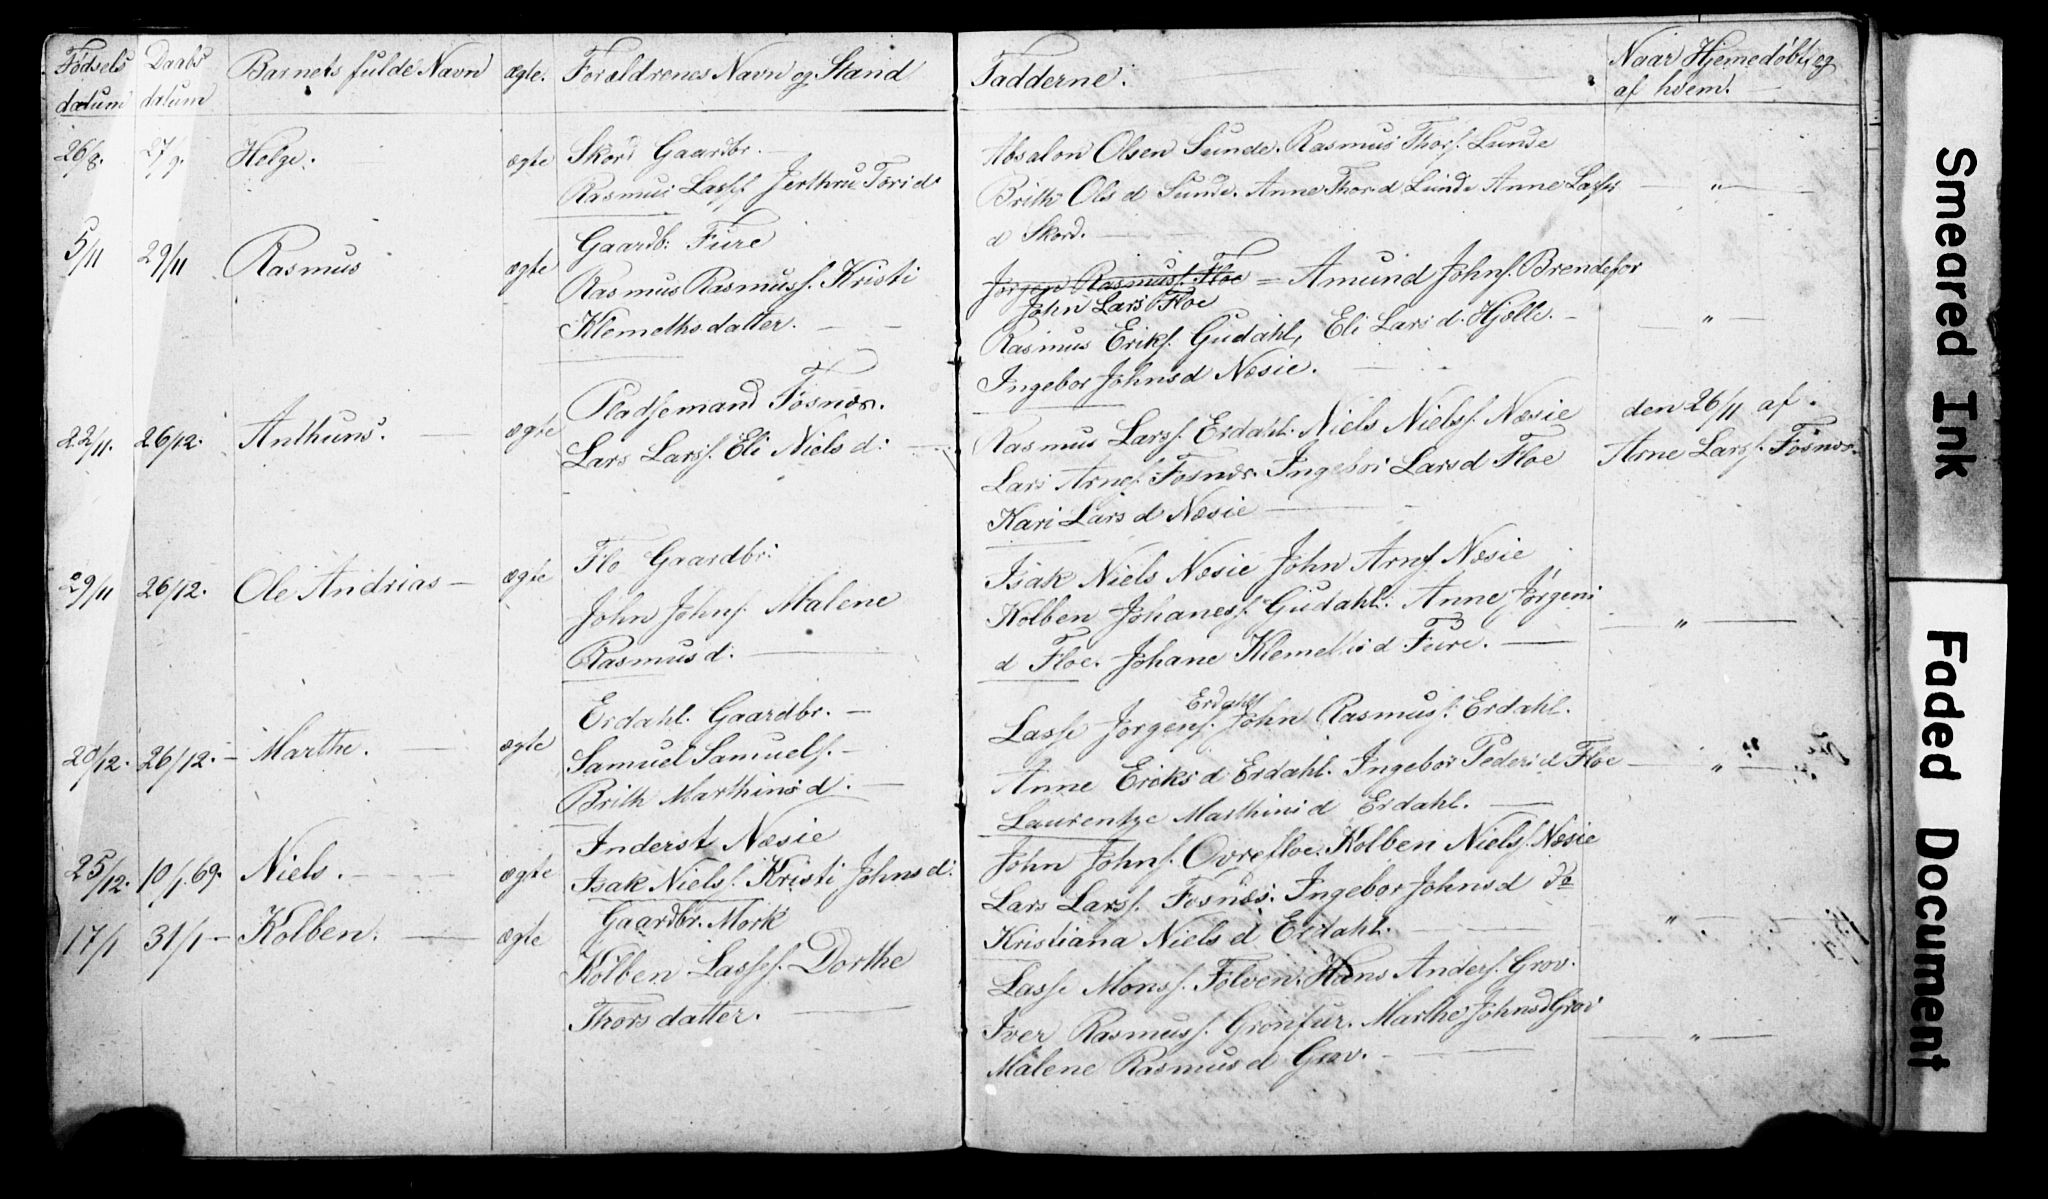 Fødsels datum
Daabs datum
Barnets fulde Navn
ægte.
Forældrenes Navn og Stand
Fadderne.
Naar Hjemedøbt, og af hvem.
26/8. 27/9. Helge. ægte Skord Gaardbr.
Rasmus Lass. Jerthru Torid.
Absalon Olsen Sunde. Rasmus Thors. Lunde
Brith Ols d Sunde. Anne Thor d Lunde Anne Lasses — „ —
d Skord.
5/11 29/11 Rasmus ægte Gaardb: Fure
Rasmus Rasmuss. Kristi
Klemethsdatter.
Jørgen Rasmuss. Floe = Amund Johns. Brendefor
John Lars Floe
Rasmus Eriks. Gudahl, Eli Lars d. Hjelle. — „ —
Ingebor Johnsd Næsie.
22/11. 26/12. Anthuns. ægte Pladsemand Fosnær.
Lars Larss. Eli Niels d:
Rasmus Larss. Erdahl. Niels Nielss. Næsie
Lars Arnes. Fosnær. Ingebor Larsd Floe
Kari Lars d Næsie
den 26/11 af.
Arne Larss. Fosnær.
29/11 26/12. Ole Andrias ægte Flo Gaardbr:
John Johns. Malene
Rasmusd.
Isak Niels Næsie John Arns Næsie
Kolben Johaness. Gudahl. Anne Jørgens
d Floe. Johane Klemetsd Fure. — „ —
20/12. 26/12. Marthe. ægte Erdahl. Gaardbr.
Samuel Samuels.
Brith Marthins d.
Erdahl
Lasse Jørgens. John Rasmuss. Erdahl.
Anne Eriks d Erdahl. Ingebor Peders d Floe — „ —
Laurentze Marthins d Erdahl.
25/12. 10/1.69. Niels. ægte Inderst Næsie
Isak Nielss. Kristi Johnsd.
John Johns. Øvrefloe. Kolben Nielss. Næsie
Lars Larss. Fosnæs. Ingebor Johnsd do
Kristiana Niels d Erdahl. „
17/1 31/1 Kolben. ægte Gaardbr. Mørk
Kolben Lasses. Dorthe
Thorsdatter.
Lasse Monss. Følven. Hans Anders. Grov.
Iver Rasmuss. Gronfur. Marthe Johnsd Grov
Malene Rasmusd Grov. — „ —
Smeared Ink
Faded Document